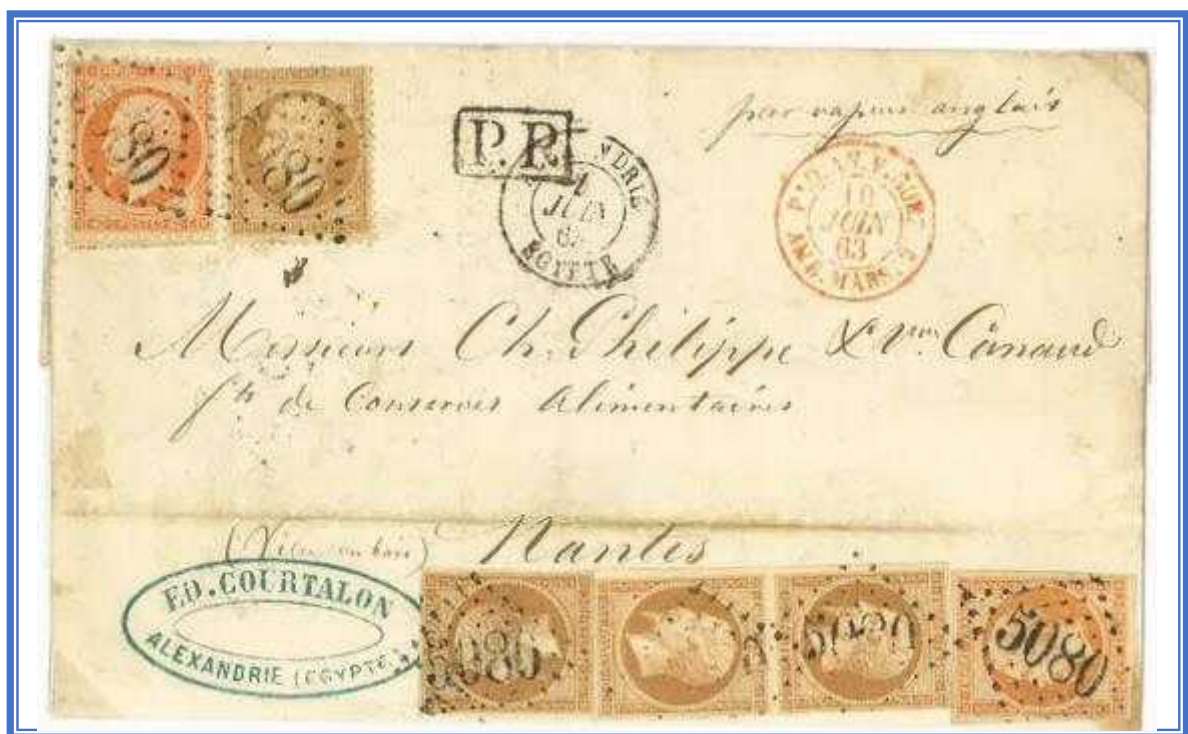 80
5080
P.P.
ALEXANDRIE
1
JUIN
EGYPTE
par vapeur anglais
10
JUIN
63
ANG. MARS.
Messieurs Ch. Philippe & Canaud
de Conserves Alimentaires
Nantes
ED. COURTALON
ALEXANDRIE (EGYPTE)
5080
5080
5080